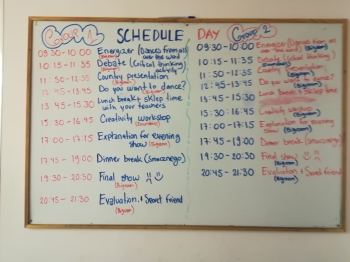 Group 1 SCHEDULE DAY Group 2
09:30-10:00 Energizer (Dances from all over the word
10:15-11:35 Debate (Critical thinking)
activity
11:50-12:35 Country presentation
(Bigroom)
12:45-13:45 Do you want to dance?
13:45-15:30 Lunch break & sklep time
with your teachers
15:30-16:45 Creativity workshop
17:00-17:15 Explanation for evening
show (Bigroom)
17:45-19:00 Dinner break (smacznego)
19:30-20:30 Final show
(Bigroom)
20:45-21:30 Evaluation + Secret friend
(Bigroom)
09:30-10:00 Energizer (Dances from all
over the word (Bigroom)
10:15-11:35 Debate (Critical thinking)
11:50-12:35 Country presentation
(Bigroom)
12:45-13:45 Do you want to dance?
(Bigroom)
13:45-15:30 Lunch break & sklep time
15:30-16:45 Creativity workshop
(Bigroom)
17:00-17:15 Explanation for evening
show (Bigroom)
17:45-19:00 Dinner break (smacznego)
19:30-20:30 Final show
(Bigroom)
20:45-21:30 Evaluation + Secret friend
(Bigroom)